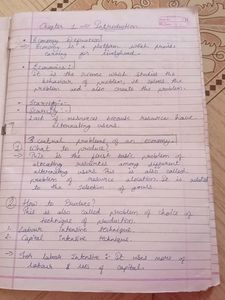 Chapter 1 → Introduction
• Economy Definition
→ Economy is a platform which provide
earning for livelihood.
• Economics :
It is the science which studies the
behaviour of problem, it solves the
problem and also create the problem.
• Scarcity :-
Lack of resources because resources have
alternative users.
3 central problems of an economy.
① What to produce?
→ This is the first basic problem of
allocating resources among different
alternating users. This is also called
problem of resource allocation. It is related
to the selection of goods.
② How to Produce?
This is also called problem of choice of
technique of production.
1. Labour Intensive technique.
2. Capital Intensive technique.
→ Labour Intensive : It uses more of
labour & less of capital.